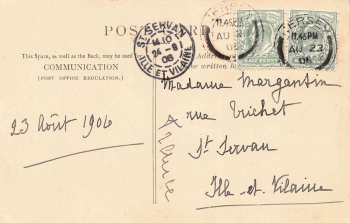 POST CARD
This Space, as well as the Back, may be used for
COMMUNICATION
(POST OFFICE REGULATION.)
ST SERVAN
14 10
24 - 8
06
ILLE ET VILAINE
11.45PM
AU 23
06
JERSEY
11.45PM
AU 23
06
HALF PENNY
23 Août 1906
Madame Margantin
rue Trichet
St Servan
Ille-et-Vilaine
France